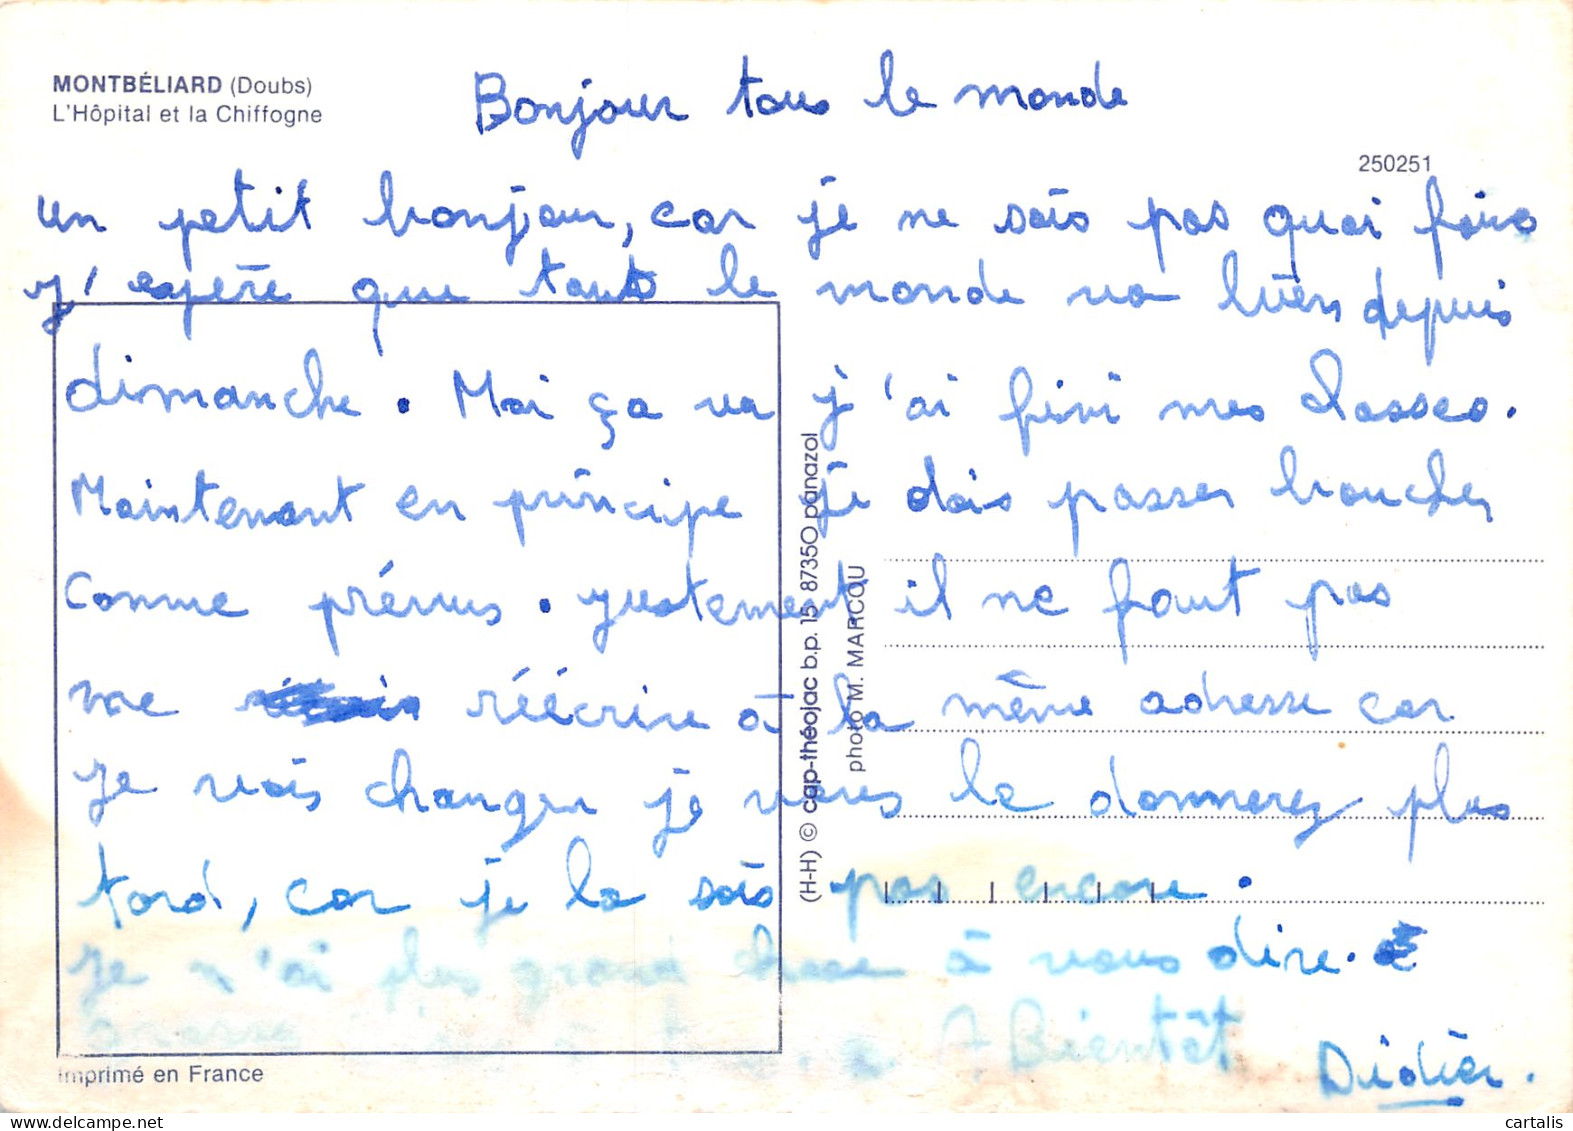 MONTBÉLIARD (Doubs)
L'Hôpital et la Chiffogne
250251
Bonjour tous le monde
un petit bonjour, car je ne sais pas quoi faire
j'espère que tout le monde va bien depuis
dimanche. Moi ça va j'ai fini mes classes.
Maintenant en principe je dois passer boucher
comme prévus. justement il ne faut pas
me réécrire à la même adresse car
je vais changer je vous la donnerez plus
tard, car je la sais pas encore.
je n'ai plus grand chose à vous dire.
A Bientôt
Didier.
(H-H) © cap-théojac b.p. 15 87350 panazol
photo M. MARCOU
Imprimé en France
cartalis